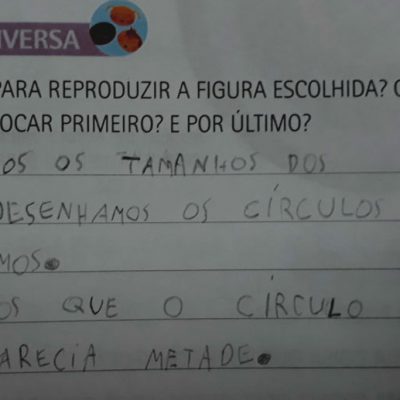 VERSA
PARA REPRODUZIR A FIGURA ESCOLHIDA?
OCAR PRIMEIRO? E POR ÚLTIMO?
OS OS TAMANHOS DOS
DESENHAMOS OS CÍRCULOS
MOS.
OS QUE O CÍRCULO
ARECIA METADE.